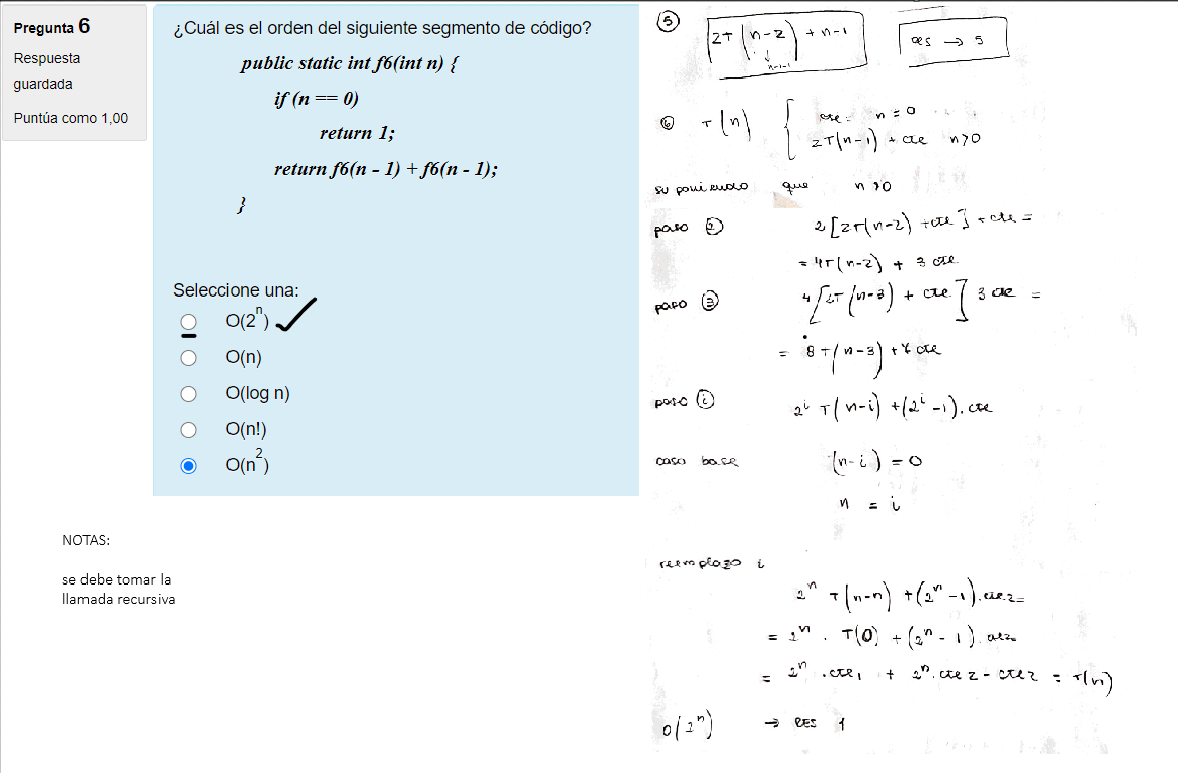 Pregunta 6
Respuesta
guardada
Puntúa como 1,00
¿Cuál es el orden del siguiente segmento de código?
public static int f6(int n) {
if (n == 0)
return 1;
return f6(n - 1) + f6(n - 1);
}
Seleccione una:
O(2^n)
O(n)
O(log n)
O(n!)
O(n^2)
NOTAS:
se debe tomar la
llamada recursiva
⑤ 2T(n-2) + n-1
n-1-1
res → 5
⑥ T(n) { cte n=0
2T(n-1) + cte n>0
suponiendo que n>0
paso ② 2[2T(n-2) + cte] + cte =
= 4T(n-2) + 3 cte
paso ③ 4[2T(n-3) + cte] 3 cte =
= 8T(n-3) + 7 cte
paso ⓘ 2^i T(n-i) + (2^i - 1). cte
caso base (n-i) = 0
n = i
reemplazo i
2^n T(n-n) + (2^n - 1). cte2 =
= 2^n . T(0) + (2^n - 1). cte2
= 2^n . cte1 + 2^n. cte2 - cte2 = T(n)
O(2^n) → RES 1